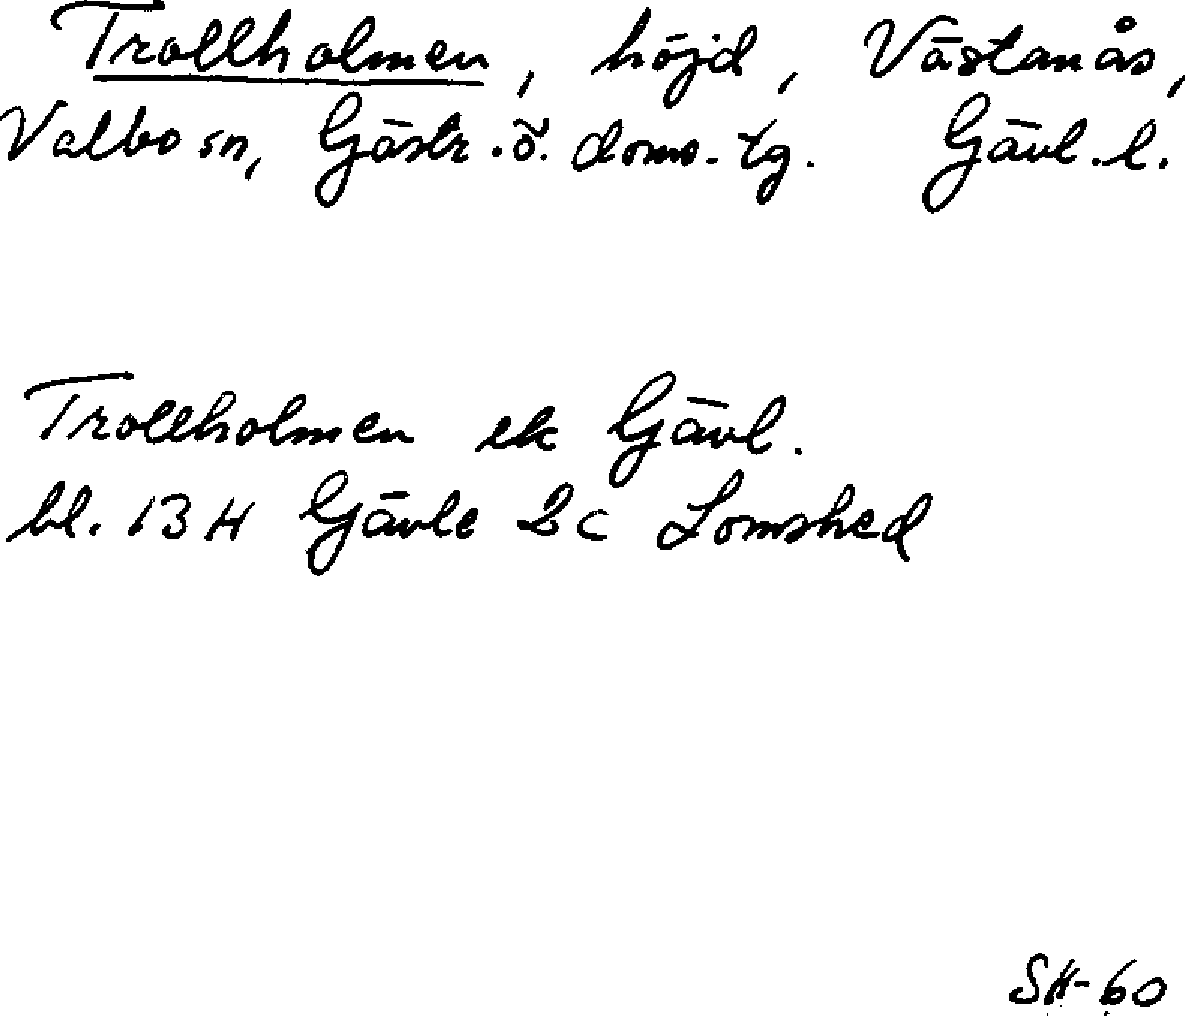 Trollholmen, höjd, Västanås,
Valbo sn, Gästr.ö. doms.tg. Gävl.l.
Trollholmen ek Gävl.
bl. 13 H Gävle 2c Lomshed
SH-60